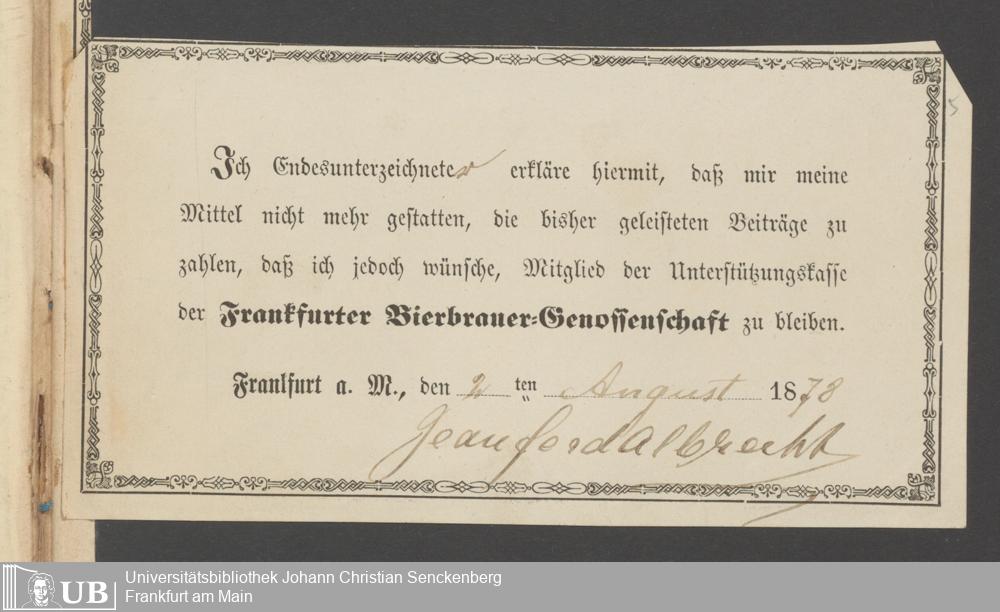 Ich Endesunterzeichneter erkläre hiermit, daß mir meine
Mittel nicht mehr gestatten, die bisher geleisteten Beiträge zu
zahlen, daß ich jedoch wünsche, Mitglied der Unterstützungskasse
der Frankfurter Bierbrauer=Genossenschaft zu bleiben.
Frankfurt a. M., den 2 ten August 1878
Jean Ferd Albrecht
5
UB
Universitätsbibliothek Johann Christian Senckenberg
Frankfurt am Main